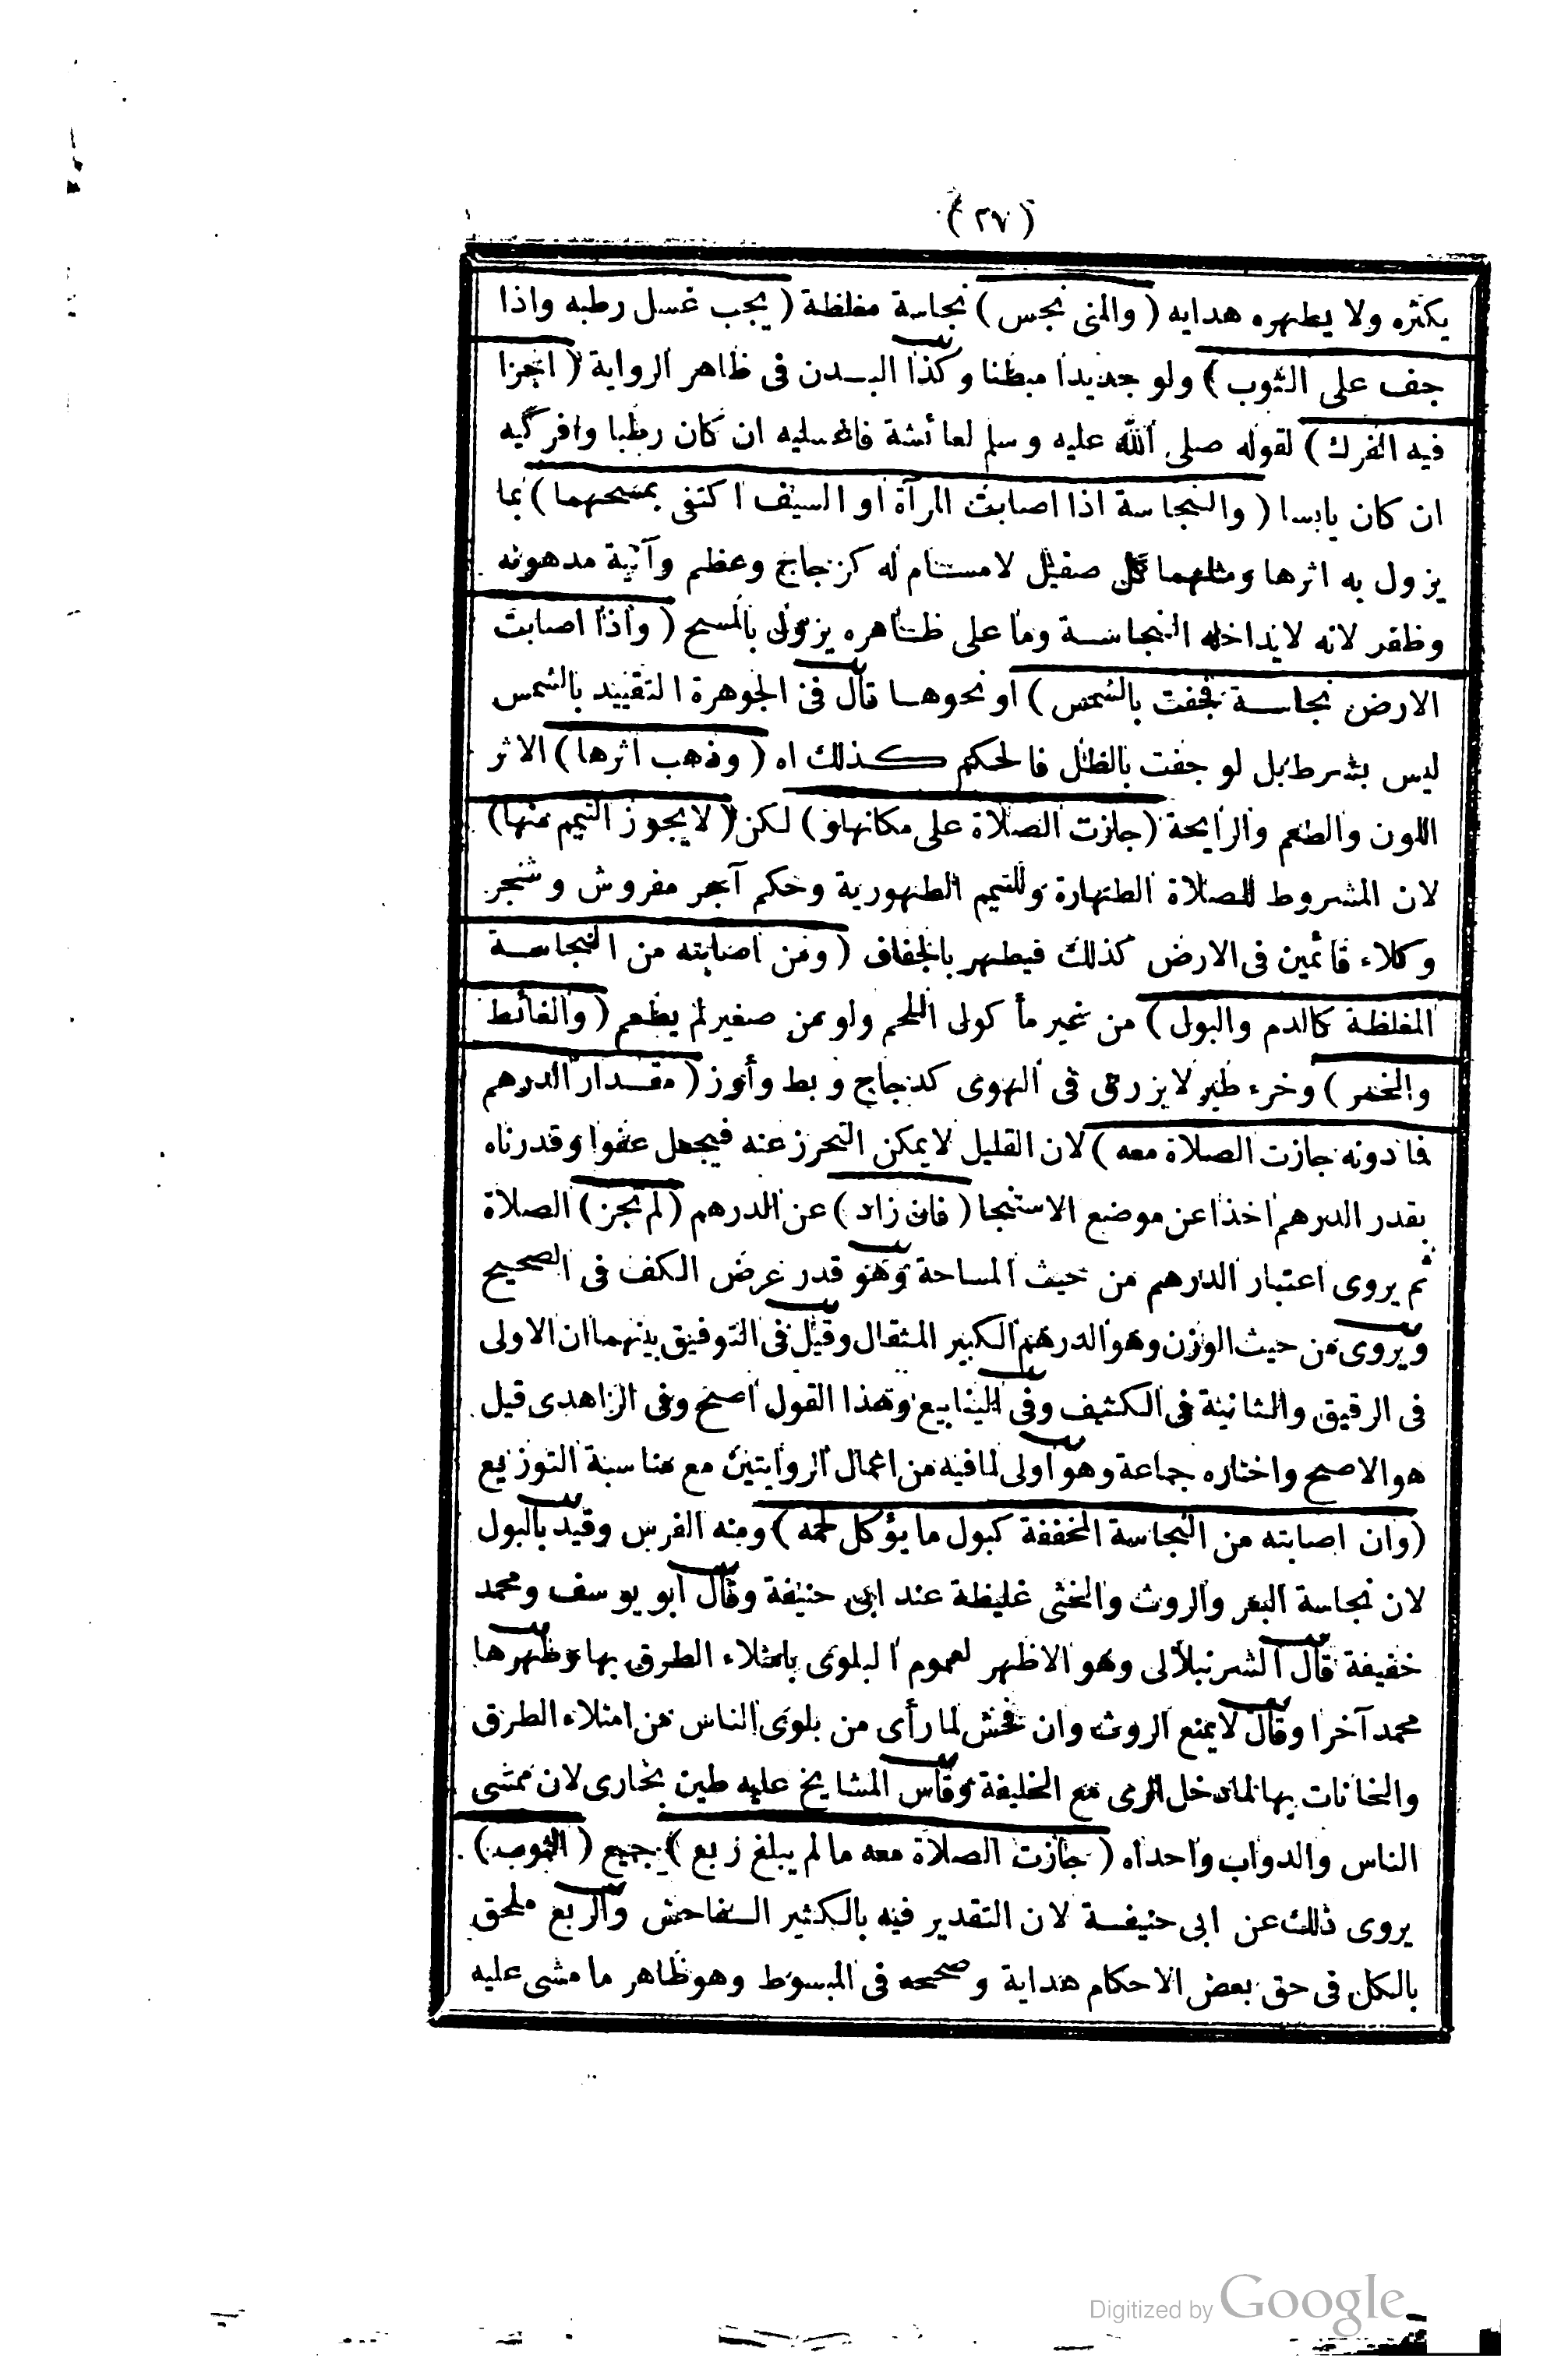 (٢٧)
يكثره ولا يطهره هدايه (والمنى نجس) نجاسة مغلظة (يجب غسل رطبه واذا
جف على الثوب) ولو جديدا مبطنا وكذا البدن فى ظاهر الرواية (اجزا
فيه الفرك) لقوله صلى الله عليه وسلم لعائشة فاغسليه ان كان رطبا وافركيه
ان كان يابسا (والنجاسة اذا اصابت المرآة او السيف اكتفى بمسحهما) بما
يزول به اثرها ومثلهما كل صقيل لا مسام له كزجاج وعظم وآنية مدهونه
وظفر لانه لا يداخله النجاسة وما على ظاهره يزول بالمسح (واذا اصابت
الارض نجاسة فجفت بالشمس) او نحوها قال فى الجوهرة التقييد بالشمس
ليس بشرط بل لو جفت بالظل فالحكم كذلك اه (وذهب اثرها) الاثر
اللون والطعم والرايحة (جازت الصلاة على مكانها و) لكن (لا يجوز التيمم منها)
لان المشروط للصلاة الطهارة وللتيمم الطهورية وحكم آجر مفروش وشجر
وكلاء قائمين فى الارض كذلك فيطهر بالجفاف (ومن اصابته من النجاسة
المغلظة كالدم والبول) من غير مأكول اللحم ولو من صغير لم يطعم (والغائط
والخمر) وخرء طير لا يزرق فى الهوى كدجاج وبط وأوز (مقدار الدرهم
فا دونه جازت الصلاة معه) لان القليل لا يمكن التحرز عنه فيجعل عفوا وقدرناه
بقدر الدرهم اخذا عن موضع الاستنجا (فان زاد) عن الدرهم (لم تجز) الصلاة
ثم يروى اعتبار الدرهم من حيث المساحة وهو قدر عرض الكف فى الصحيح
ويروى من حيث الوزن وهو الدرهم الكبير المثقال وقيل فى التوفيق بينهما ان الاولى
فى الرقيق والثانية فى الكثيف وفى الينابيع وهذا القول اصح وفى الزاهدى قيل
هو الاصح واختاره جماعة وهو اولى لما فيه من اعمال الروايتين مع مناسبة التوزيع
(وان اصابته من النجاسة المخففة كبول ما يؤكل لحمه) ومنه الفرس وقيد بالبول
لان نجاسة البعر والروث والخثى غليظة عند ابى حنيفة وقال ابو يوسف ومحمد
خفيفة قال الشرنبلالى وهو الاظهر لعموم البلوى بامتلاء الطرق بها وطهرها
محمد آخرا وقال لا يمنع الروث وان فحش لما رأى من بلوى الناس من امتلاء الطرق
والخانات بها لما دخل الرى مع الخليفة وقاس المشايخ عليه طين بخارى لان ممشى
الناس والدواب واحد اه (جازت الصلاة معه ما لم يبلغ ربع) جميع (الثوب)
يروى ذلك عن ابى حنيفة لان التقدير فيه بالكثير الفاحش والربع ملحق
بالكل فى حق بعض الاحكام هداية وصححه فى المبسوط وهو ظاهر ما مشى عليه
Digitized by Google